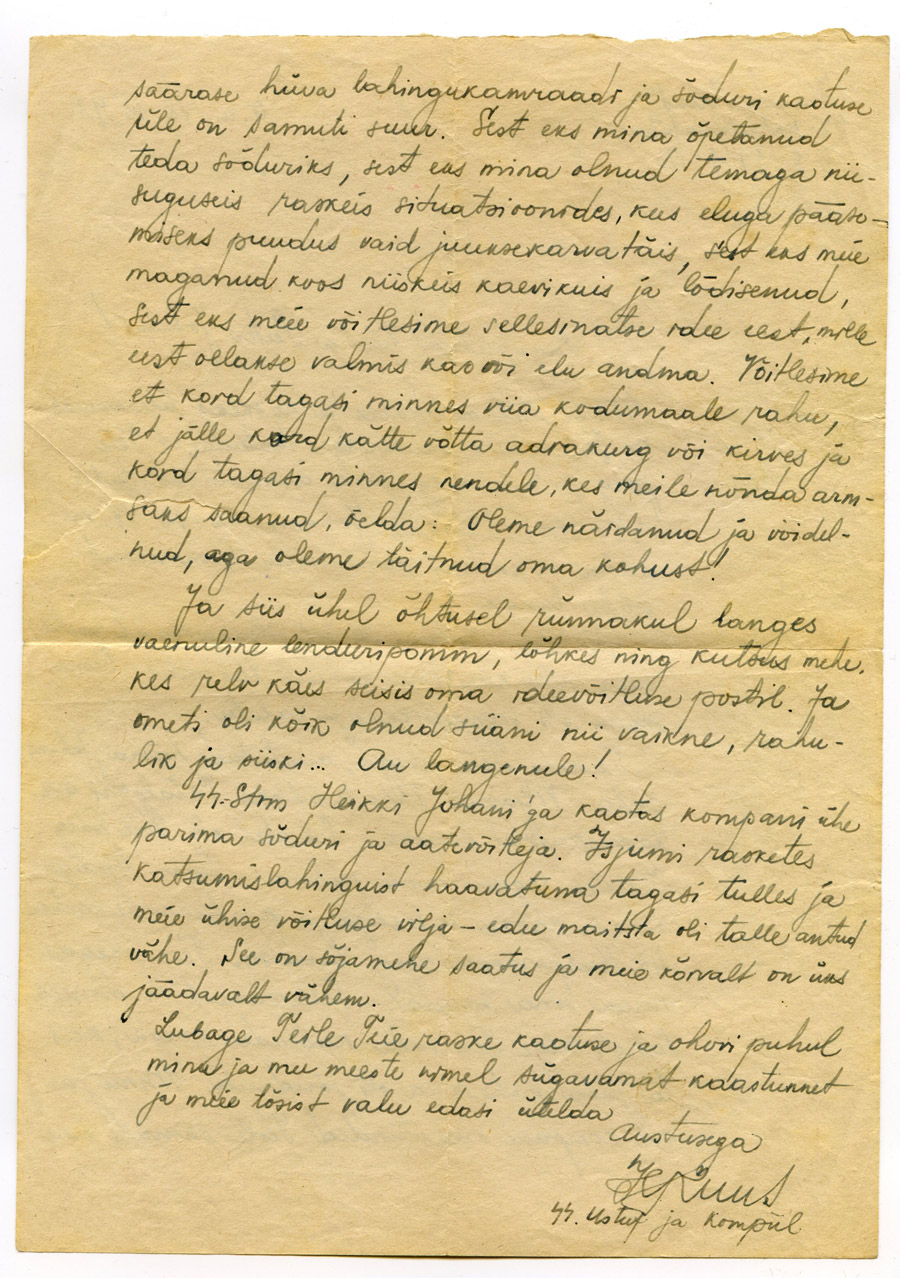 säärase hüva lahingukamraadi ja sõduri kaotuse
üle on samuti suur. Sest eks mina õpetanud
teda sõduriks, sest eks mina olnud temaga nii-
suguseis raskeis situatsioonides, kus eluga pääse-
miseks puudus vaid juuksekarva täis, sest eks meie
maganud koos niiskeis kaevikuis ja lõdisenud,
sest eks meie võitlesime sellesinatse idee eest, mille
eest ollakse valmis kas või elu andma. Võitlesime
et kord tagasi minnes viia kodumaale rahu,
et jälle kord kätte võtta adrakurg või kirves ja
kord tagasi minnes nendele, kes meile nõnda arm-
saks saanud, öelda: Oleme näidanud ja võidel-
nud, aga oleme täitnud oma kohust!
Ja siis ühel õhtusel rünnakul langes
vaenuline lenduripomm, lõhkes ning kutsus mehe,
kes relv käes seisis oma ideevõitluse postil. Ja
ometi oli kõik olnud siiani nii vaikne, rahu-
lik ja siiski... Au langenule!
SS-Strm Heikki Juhani'ga kaotas kompanii ühe
parima sõduri ja aatevõitleja. Isjumi rasketes
katsumislahinguist haavatuna tagasi tulles ja
meie ühise võitluse vilja – edu maitsta oli talle antud
vähe. See on sõjamehe saatus ja meie kõrvalt on üks
jäädavalt vähem.
Lubage Teile Teie raske kaotuse ja ohvri puhul
minu ja mu meeste nimel sügavamat kaastunnet
ja meie tõsist valu edasi ütelda
Austusega
HRuus
SS. Ustuf ja kompül